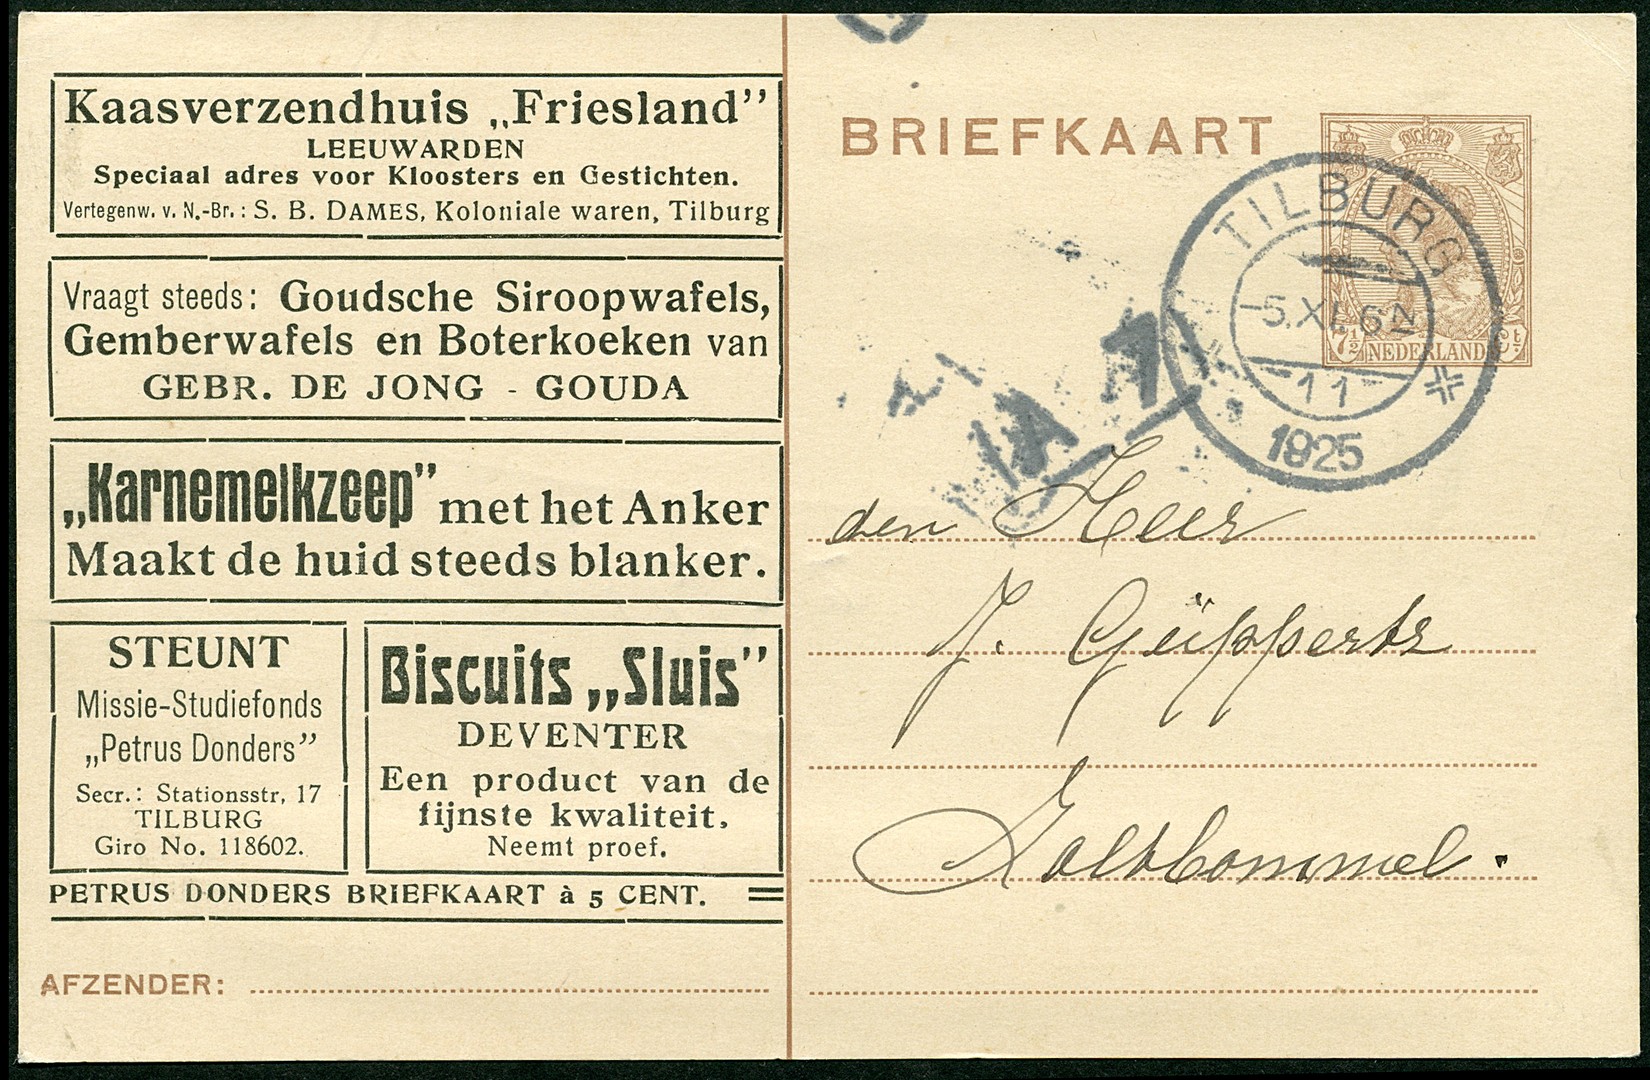 Kaasverzendhuis „Friesland”
LEEUWARDEN
Speciaal adres voor Kloosters en Gestichten.
Vertegenw. v. N.-Br.: S. B. DAMES, Koloniale waren, Tilburg
Vraagt steeds: Goudsche Siroopwafels,
Gemberwafels en Boterkoeken van
GEBR. DE JONG - GOUDA
„Karnemelkzeep” met het Anker
Maakt de huid steeds blanker.
STEUNT
Missie-Studiefonds
„Petrus Donders”
Secr.: Stationsstr, 17
TILBURG
Giro No. 118602.
Biscuits „Sluis”
DEVENTER
Een product van de
fijnste kwaliteit.
Neemt proef.
PETRUS DONDERS BRIEFKAART à 5 CENT.
AFZENDER:
BRIEFKAART
7½ NEDERLAND Ct
TILBURG
-5.XI.6N
11
1925
den Heer
J. Güppertz
Zaltbommel.